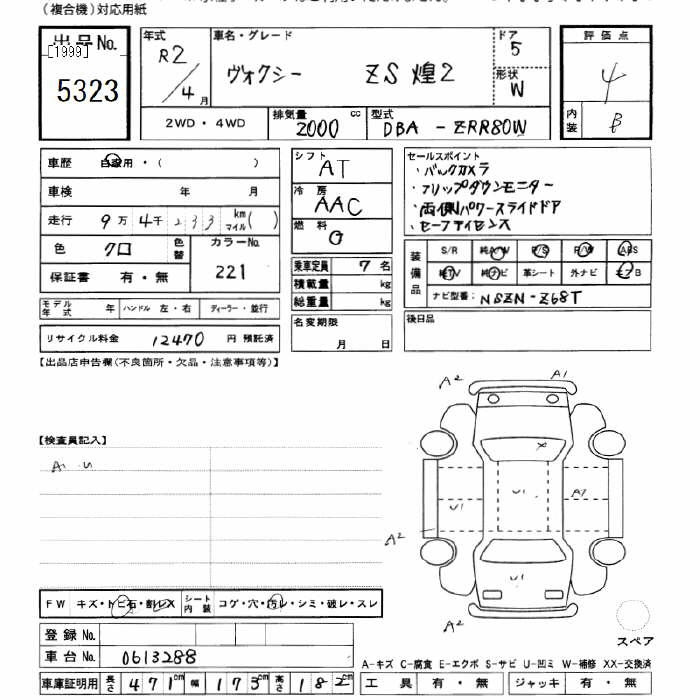 (複合機)対応用紙
出品No.
[1999]
5323
年式
R2/4月
車名・グレード
ヴォクシー ZS 煌2
ドア
5
形状
W
評価点
4
内装
B
2WD・4WD
排気量
2000 cc
型式
DBA-ZRR80W
車歴 自家用・( )
車検 年 月
走行 9万4千233 km マイル( )
色 クロ 色替
カラーNo.
221
保証書 有・無
モデル年式 年 ハンドル 左・右 ディーラー・並行
リサイクル料金 12470 円 預託済
シフト
AT
冷房
AAC
燃料
G
乗車定員 7名
積載量 kg
総重量 kg
名変期限
月 日
セールスポイント
・バックカメラ
・フリップダウンモニター
・両側パワースライドドア
・セーフティセンス
装備品
S/R 純A/W P/S P/W ABS
純TV 純ナビ 革シート 外ナビ エアB
ナビ型番: NSZN-Z68T
後日品
【出品店申告欄(不良箇所・欠品・注意事項等)】
【検査員記入】
A. U
A2
A1
U1
U1
A1
A2
U1
A2
スペア
FW キズ・トビ石・割レX
シート内装 コゲ・穴・汚レ・シミ・破レ・スレ
登録No.
車台No. 0613288
車庫証明用 長さ 471cm 幅 173cm 高さ 182cm
A-キズ C-腐食 E-エクボ S-サビ U-凹ミ W-補修 XX-交換済
工具 有・無 ジャッキ 有・無